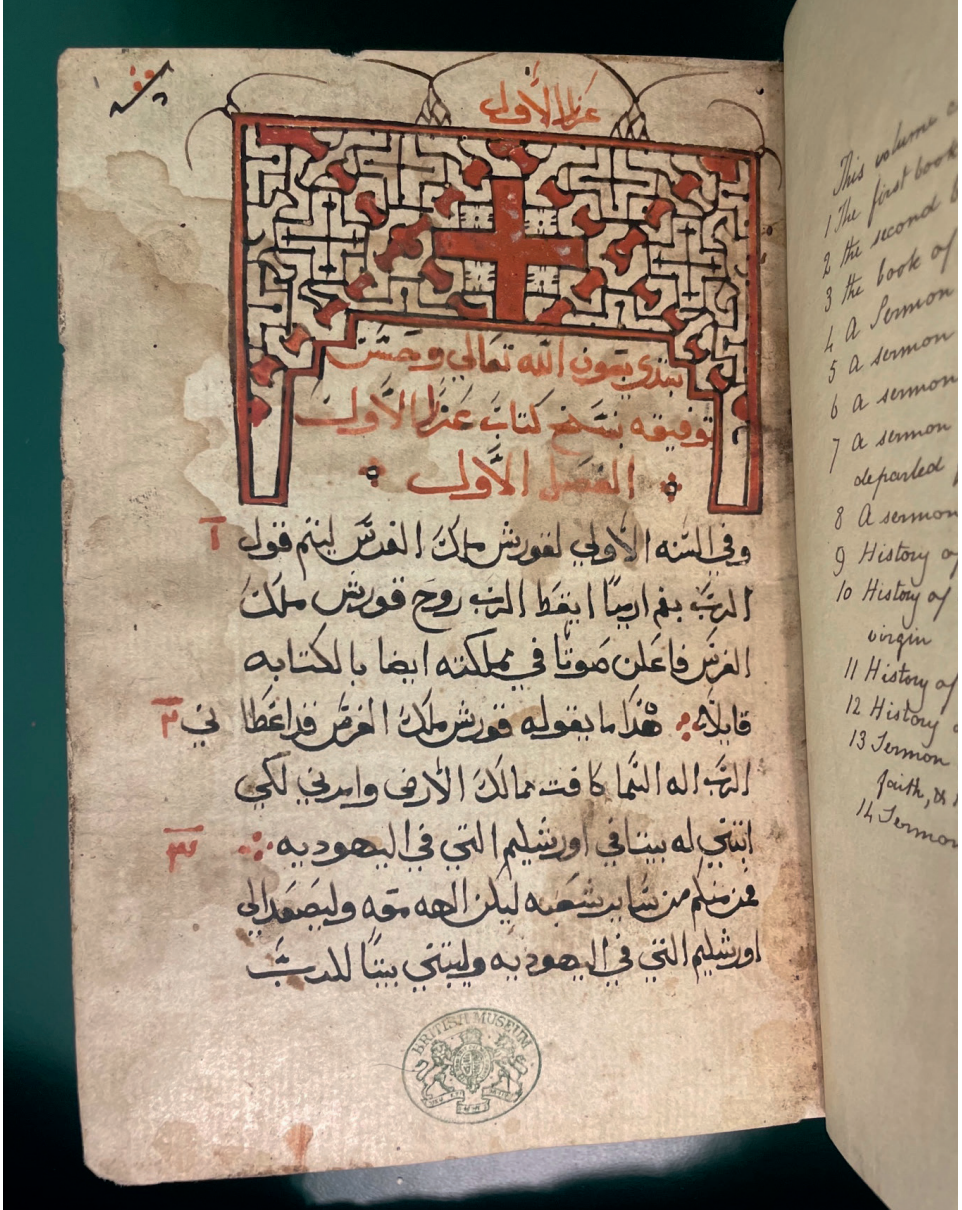 عزرا الاول
نبتدي بعون الله تعالي وحسن
توفيقه بنسخ كتاب عزرا الاول
الفصل الاول
وفي السنه الاولي لقورش ملك الفرس ليتم قول ا
الربّ بفم ارميا ايقظ الرب روح قورش ملك
الفرس فاعلن صوتًا في مملكته ايضا بالكتابه
قايلاً هذا ما يقوله قورش ملك الفرس قد اعطا ني ٢
الربّ اله السّما كافت ممالك الأرض وامرني لكي
ابتني له بيتا في اورشليم التي في اليهوديه ٣
فمن منكم من ساير شعبه ليكن الهه معه وليصعد الي
اورشليم التي في اليهوديه وليبتني بيتًا للربّ
BRITISH MUSEUM
This volume
1 The first book
2 the second
3 the book of
4 A Sermon
5 A sermon
6 a sermon
7 a sermon
departed
8 A sermon
9 History of
10 History of
virgin
11 History of
12 History
13 Sermon
faith, &
14 Sermon